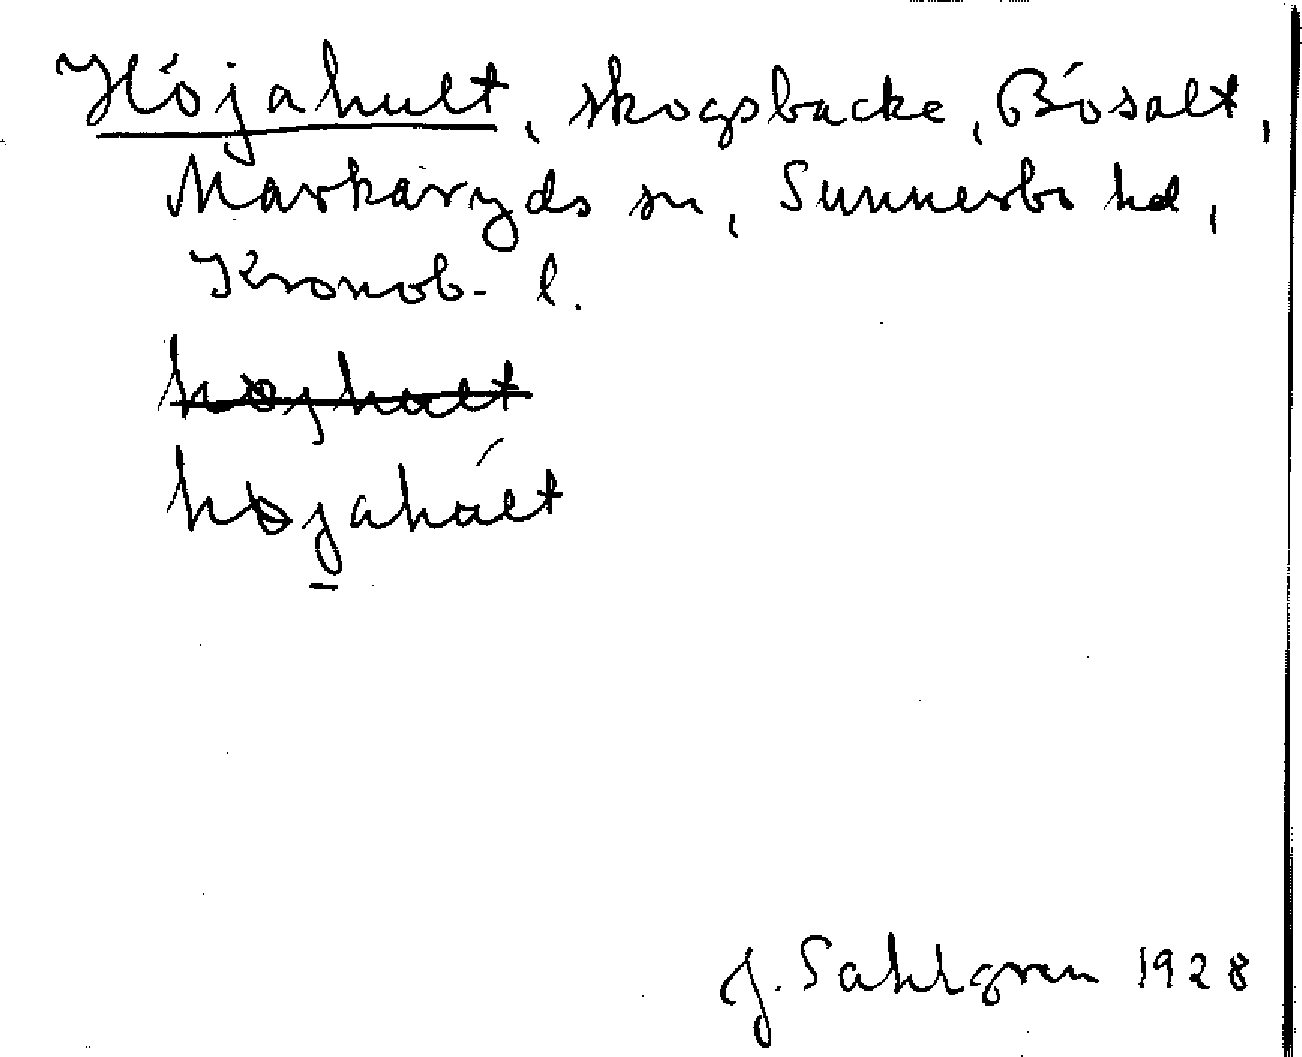 Höjahult, skogsbacke, Bösalt,
Markaryds sn, Sunnerbo hd,
Kronob- l.
højhult
højahúlt
J. Sahlgren 1928